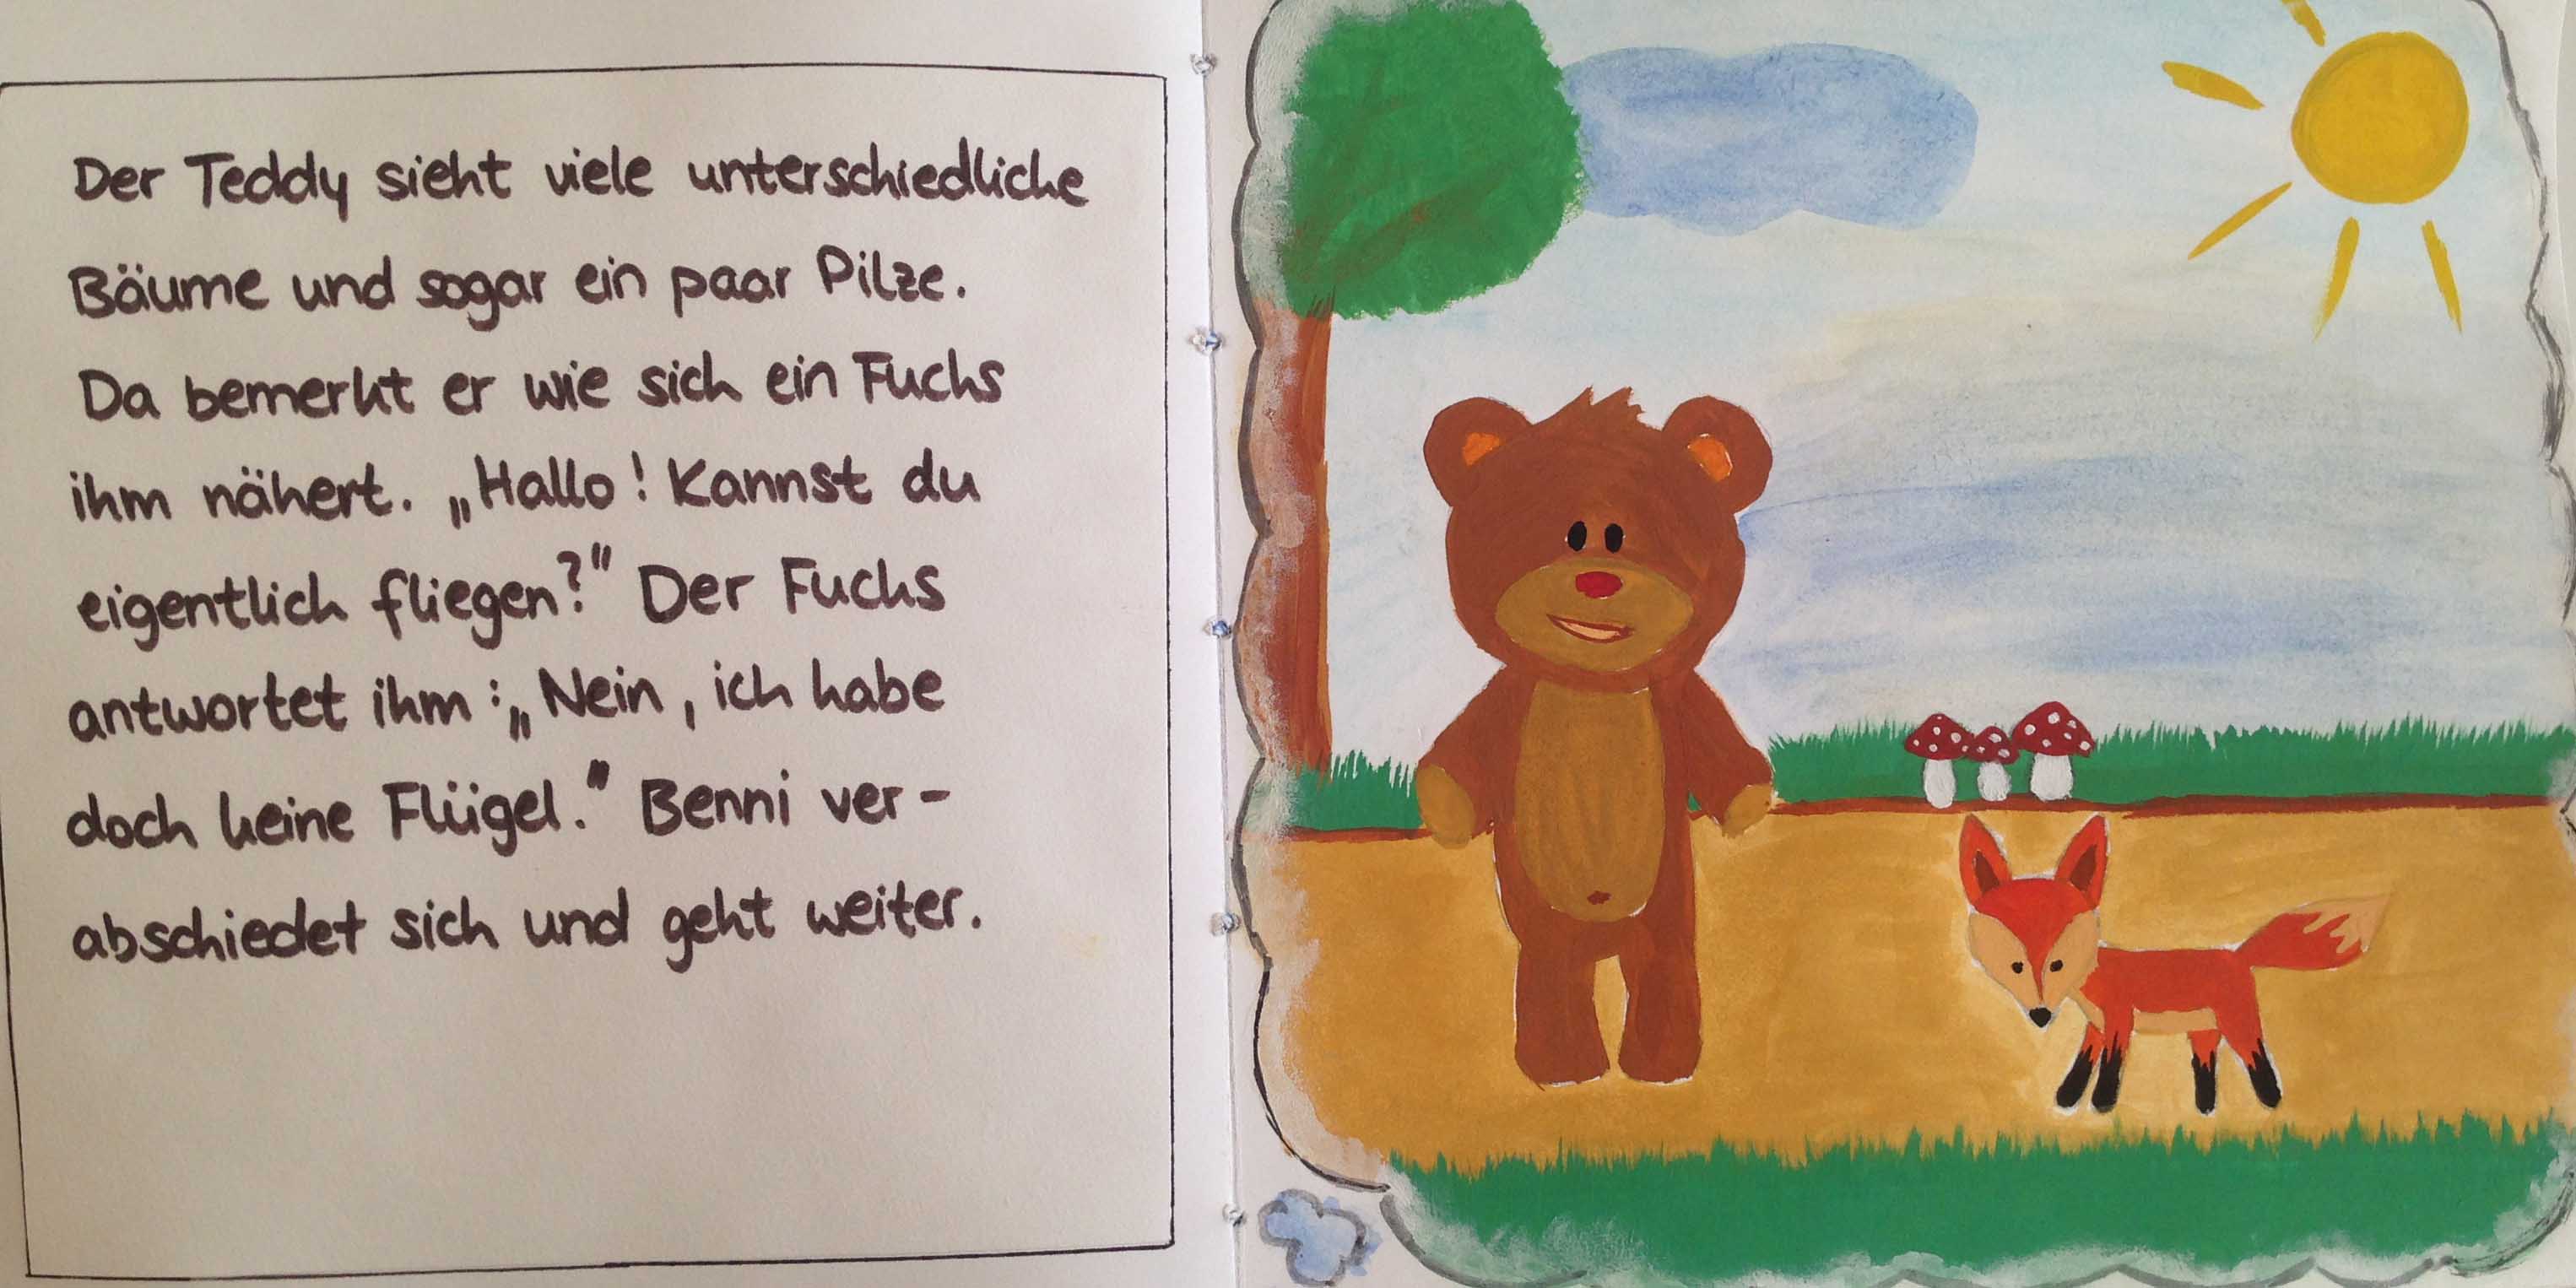 Der Teddy sieht viele unterschiedliche
Bäume und sogar ein paar Pilze.
Da bemerkt er wie sich ein Fuchs
ihm nähert. „Hallo! Kannst du
eigentlich fliegen?" Der Fuchs
antwortet ihm:„Nein, ich habe
doch keine Flügel." Benni ver-
abschiedet sich und geht weiter.